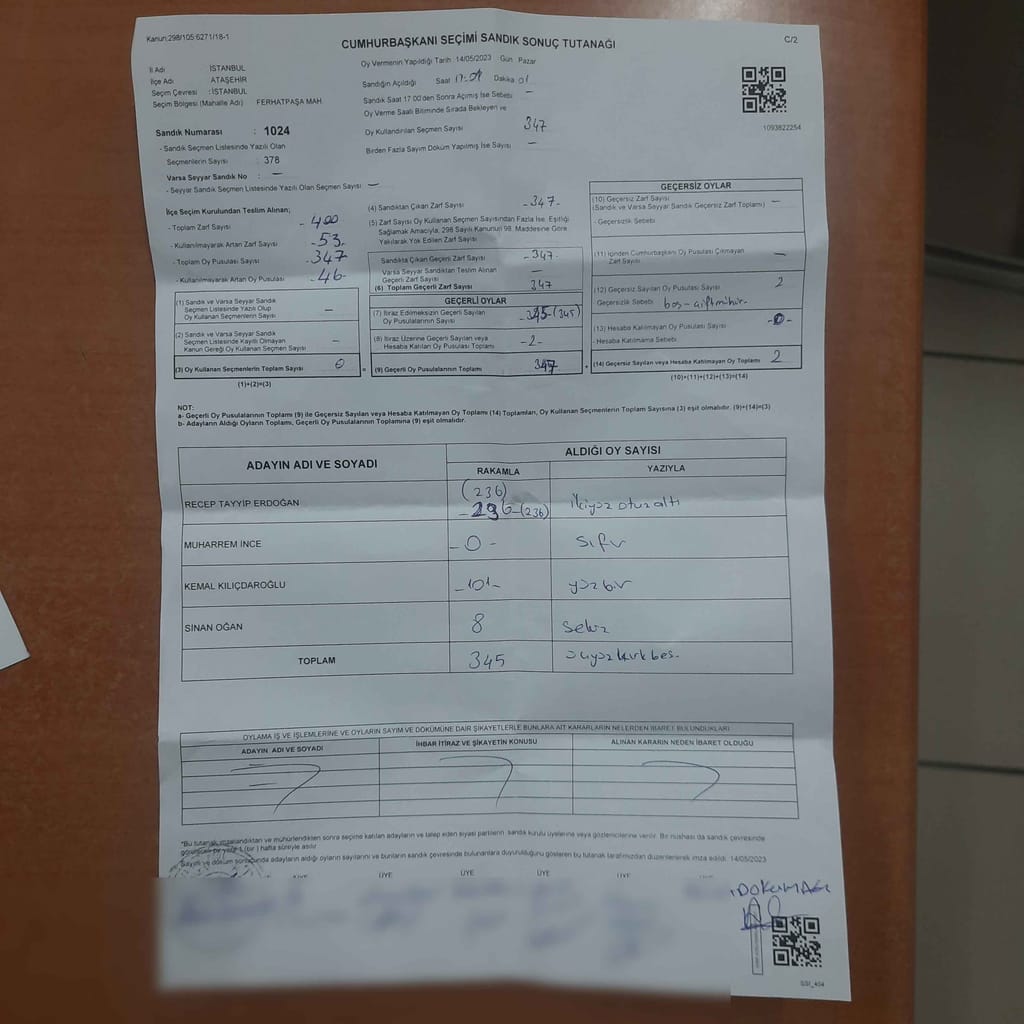 Kanun:298/105 6271/18-1
C/2
CUMHURBAŞKANI SEÇİMİ SANDIK SONUÇ TUTANAĞI
İl Adı İSTANBUL
İlçe Adı ATAŞEHİR
Seçim Çevresi : İSTANBUL
Seçim Bölgesi (Mahalle Adı) FERHATPAŞA MAH.
Oy Vermenin Yapıldığı Tarih 14/05/2023 Gün Pazar
Sandığın Açıldığı Saat 17:01 Dakika 01
Sandık Saat 17:00'den Sonra Açımış İse Sebebi —
Oy Verme Saati Bitiminde Sırada Bekleyen ve
Oy Kullandırılan Seçmen Sayısı 347
Birden Fazla Sayım Döküm Yapılmış İse Sayısı —
1093822254
Sandık Numarası : 1024
- Sandık Seçmen Listesinde Yazılı Olan
Seçmenlerin Sayısı : 378
Varsa Seyyar Sandık No : —
- Seyyar Sandık Seçmen Listesinde Yazılı Olan Seçmen Sayısı —
İlçe Seçim Kurulundan Teslim Alınan;
- Toplam Zarf Sayısı - 400
- Kullanılmayarak Artan Zarf Sayısı -53.
- Toplam Oy Pusulası Sayısı -347
- Kullanılmayarak Artan Oy Pusulası -46-
(1) Sandık ve Varsa Seyyar Sandık
Seçmen Listesinde Yazılı Olup
Oy Kullanan Seçmenlerin Sayısı —
(2) Sandık ve Varsa Seyyar Sandık
Seçmen Listesinde Kayıtlı Olmayan
Kanun Gereği Oy Kullanan Seçmen Sayısı —
(3) Oy Kullanan Seçmenlerin Toplam Sayısı 0
(1)+(2)=(3)
(4) Sandıktan Çıkan Zarf Sayısı -347-
(5) Zarf Sayısı Oy Kullanan Seçmen Sayısından Fazla İse, Eşitliği
Sağlamak Amacıyla, 298 Sayılı Kanunun 98. Maddesine Göre
Yakılarak Yok Edilen Zarf Sayısı
Sandıkta Çıkan Geçerli Zarf Sayısı -347-
Varsa Seyyar Sandıktan Teslim Alınan
Geçerli Zarf Sayısı —
(6) Toplam Geçerli Zarf Sayısı 347
GEÇERLİ OYLAR
(7) İtiraz Edilmeksizin Geçerli Sayılan
Oy Pusulalarının Sayısı -345-(345)
(8) İtiraz Üzerine Geçerli Sayılan veya
Hesaba Katılan Oy Pusulası Toplamı -2-
(9) Geçerli Oy Pusulalarının Toplamı 347
GEÇERSİZ OYLAR
(10) Geçersiz Zarf Sayısı —
(Sandık ve Varsa Seyyar Sandık Geçersiz Zarf Toplamı)
- Geçersizlik Sebebi
(11) İçinden Cumhurbaşkanı Oy Pusulası Çıkmayan
Zarf Sayısı —
(12) Geçersiz Sayılan Oy Pusulası Sayısı 2
Geçersizlik Sebebi boş - çift mühür-
(13) Hesaba Katılmayan Oy Pusulası Sayısı -0-
- Hesaba Katılmama Sebebi
(14) Geçersiz Sayılan veya Hesaba Katılmayan Oy Toplamı 2
(10)+(11)+(12)+(13)=(14)
NOT:
a- Geçerli Oy Pusulalarının Toplamı (9) ile Geçersiz Sayılan veya Hesaba Katılmayan Oy Toplamı (14) Toplamları, Oy Kullanan Seçmenlerin Toplam Sayısına (3) eşit olmalıdır. (9)+(14)=(3)
b- Adayların Aldığı Oyların Toplamı, Geçerli Oy Pusulalarının Toplamına (9) eşit olmalıdır.
ADAYIN ADI VE SOYADI ALDIĞI OY SAYISI
RAKAMLA YAZIYLA
(236)
RECEP TAYYİP ERDOĞAN -236-(236) ikiyüz otuz altı
MUHARREM İNCE -0- sıfır
KEMAL KILIÇDAROĞLU -101- yüz bir
SİNAN OĞAN 8 sekiz
TOPLAM 345 üçyüz kırk beş.
OYLAMA İŞ VE İŞLEMLERİNE VE OYLARIN SAYIM VE DÖKÜMÜNE DAİR ŞİKAYETLERLE BUNLARA AİT KARARLARIN NELERDEN İBARET BULUNDUKLARI
ADAYIN ADI VE SOYADI İHBAR İTİRAZ VE ŞİKAYETİN KONUSU ALINAN KARARIN NEDEN İBARET OLDUĞU
*Bu tutanak imzalandıktan ve mühürlendikten sonra seçime katılan adayların ve talep eden siyasi partilerin sandık kurulu üyelerine veya gözlemcilerine verilir. Bir nüshası da sandık çevresinde
görülecek bir yere 1 (bir) hafta süreyle asılır
Sayım ve döküm sonucunda adayların aldığı oyların sayılarını ve bunların sandık çevresinde bulunanlara duyurulduğunu gösteren bu tutanak tarafımızdan düzenlenerek imza edildi. 14/05/2023
ÜYE ÜYE ÜYE ÜYE ÜYE